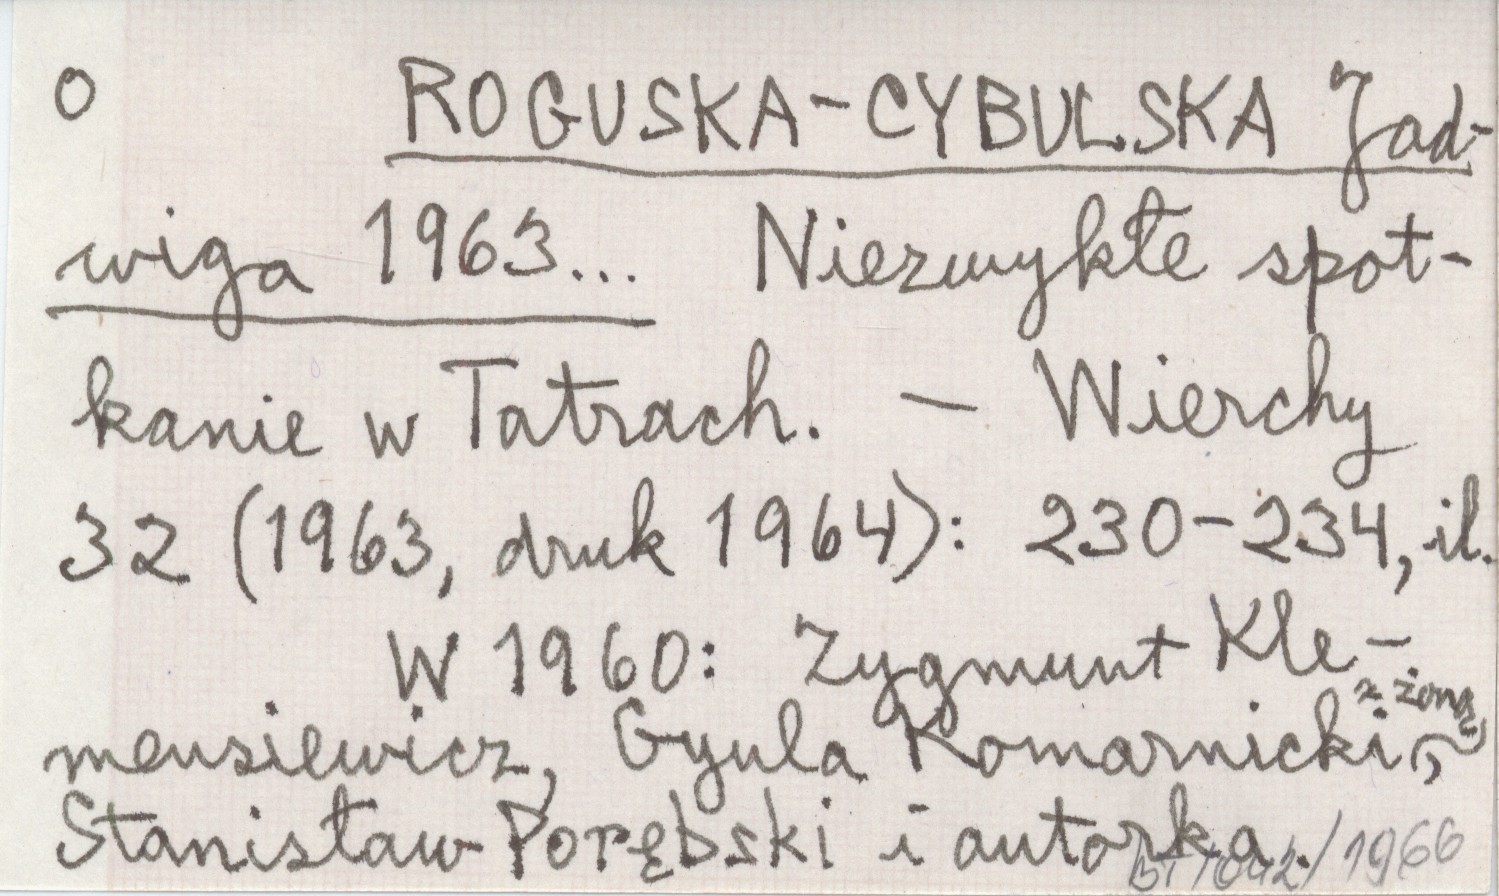 O ROGUSKA-CYBULSKA Jad-
wiga 1963... Niezwykłe spot-
kanie w Tatrach. — Wierchy
32 (1963, druk 1964): 230-234, il.
W 1960: Zygmunt Kle-
mensiewicz, Gyula Komarnicki z żoną,
Stanisław Porębski i autorka.
/1966